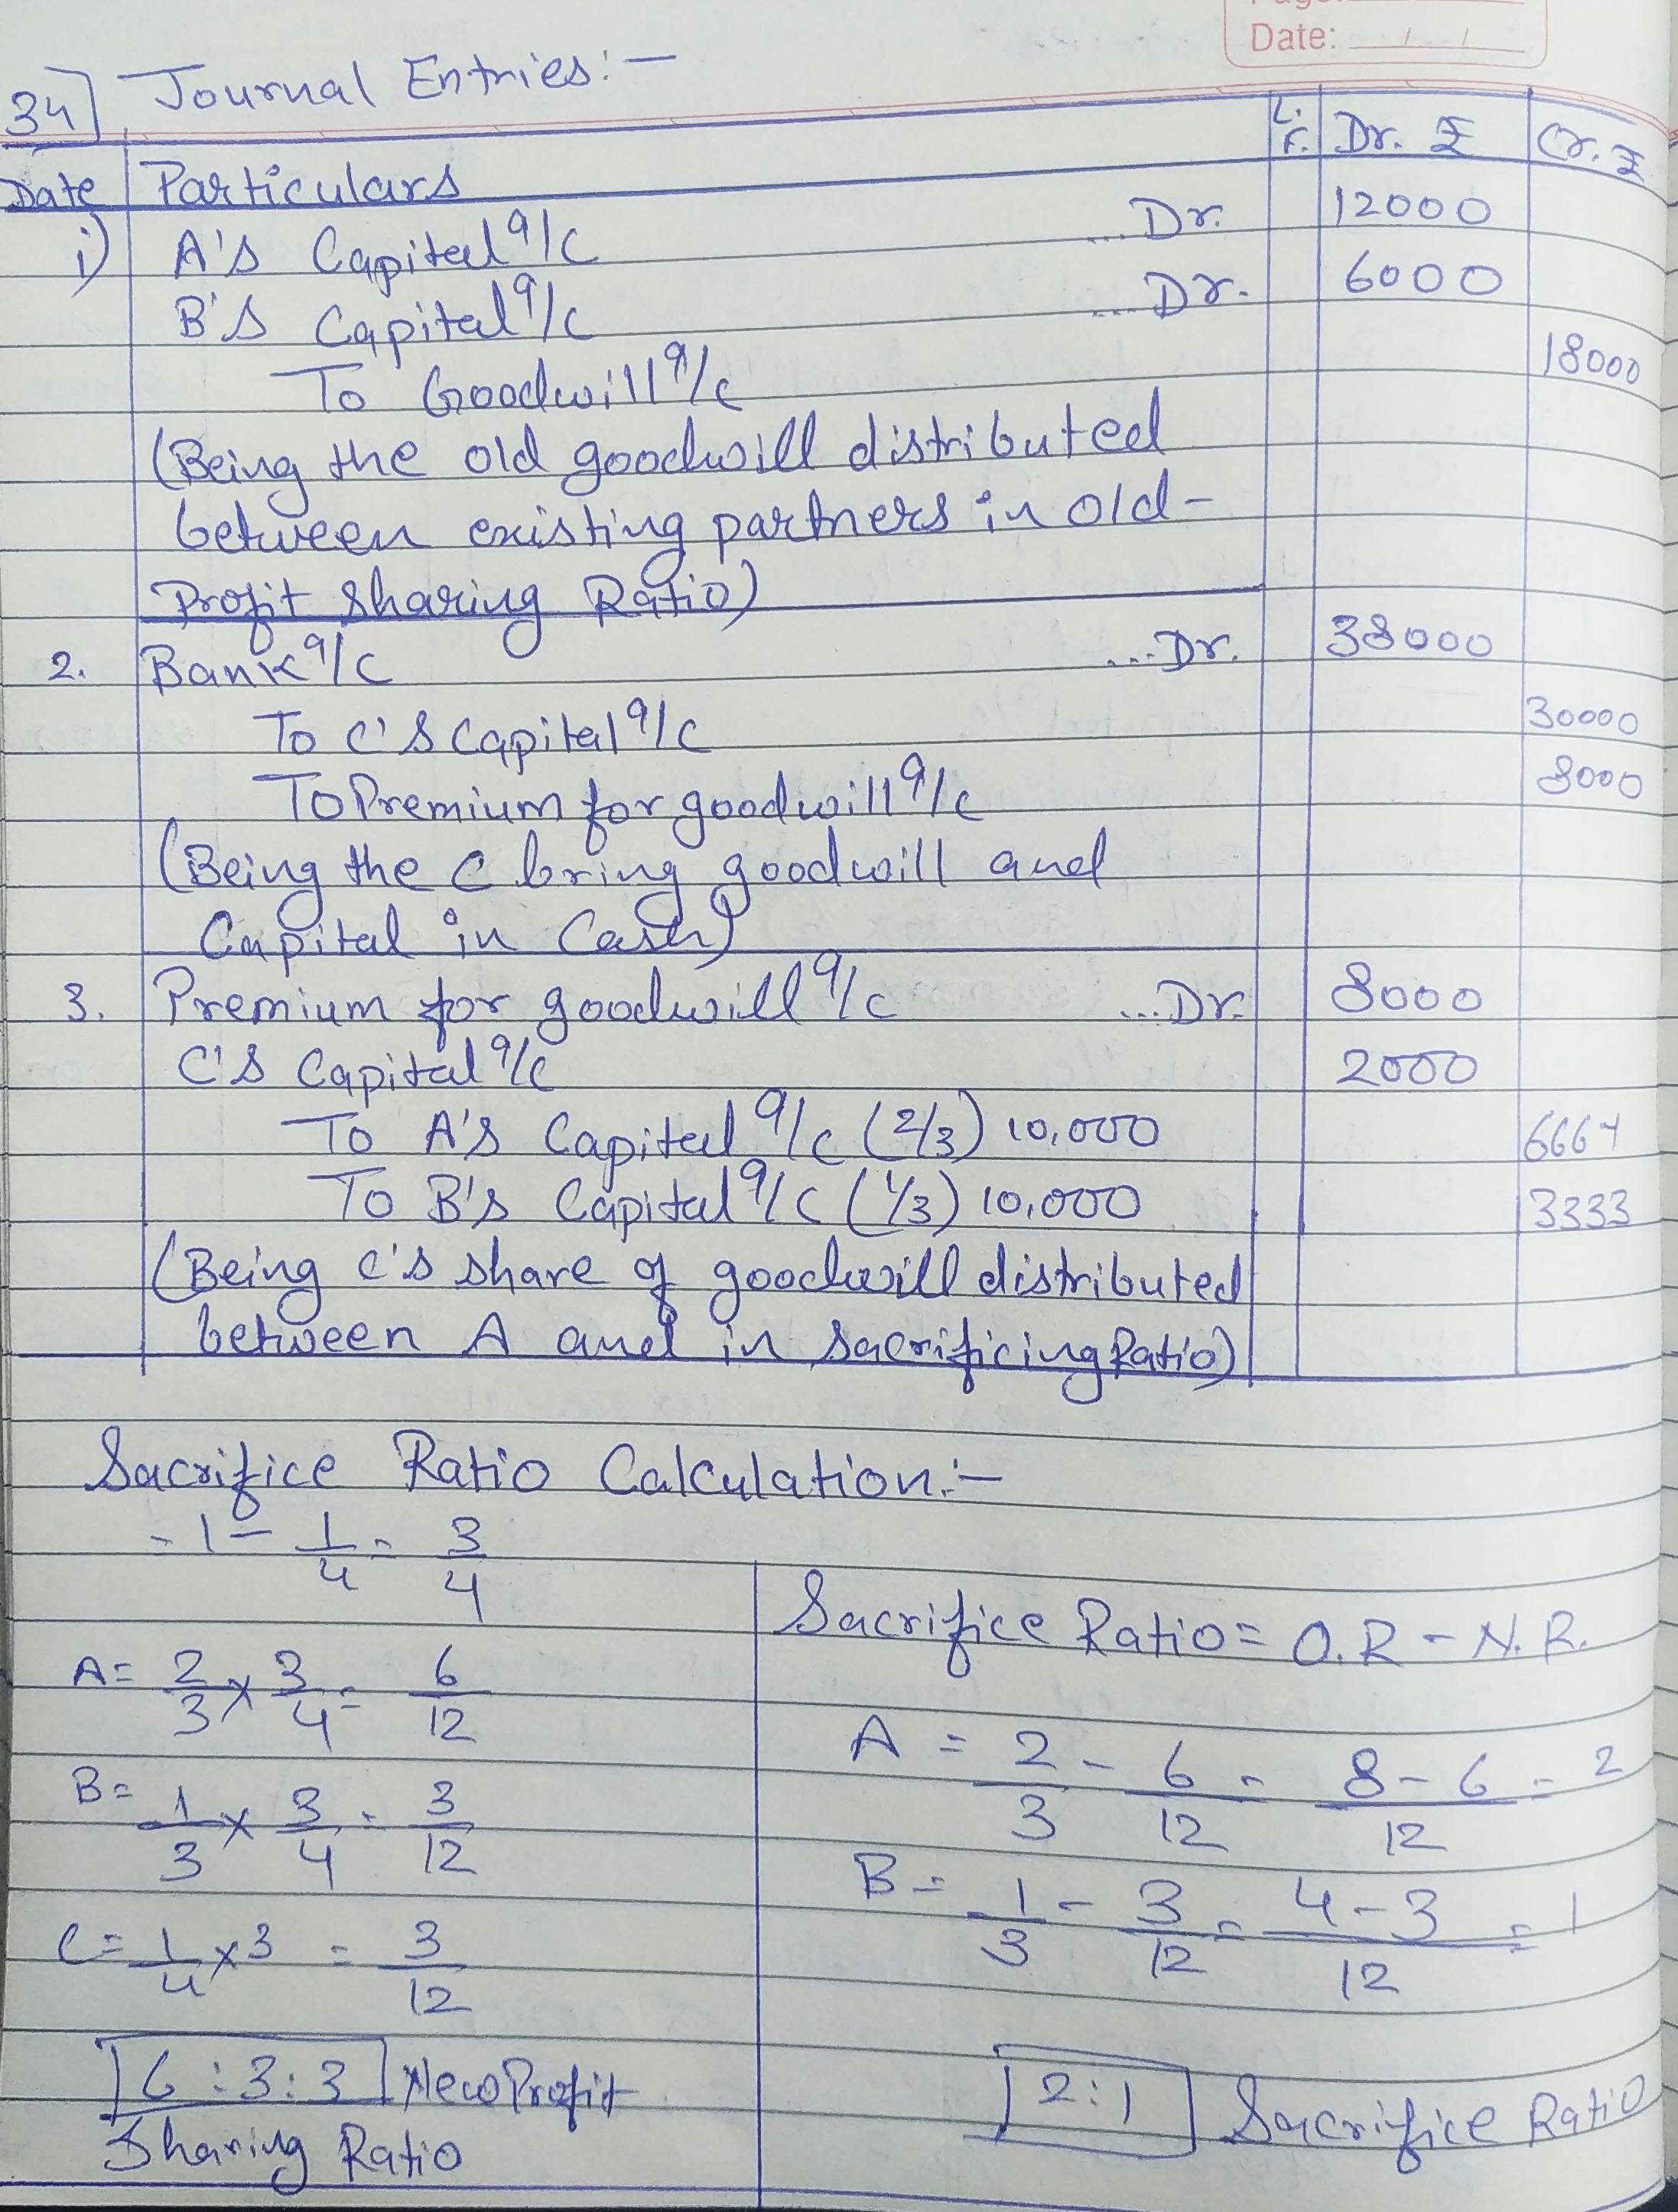 Date: / /
34] Journal Entries:-
Date Particulars L.F. Dr. ₹ Cr. ₹
i) A's Capital a/c ...Dr. 12000
B's Capital a/c ...Dr. 6000
To Goodwill a/c 18000
(Being the old goodwill distributed
between existing partners in old-
Profit sharing Ratio)
2. Bank a/c ...Dr. 38000
To C's Capital a/c 30000
To Premium for goodwill a/c 8000
(Being the C bring goodwill and
Capital in Cash)
3. Premium for goodwill a/c ...Dr. 8000
C's Capital a/c 2000
To A's Capital a/c (2/3) 10,000 6667
To B's Capital a/c (1/3) 10,000 3333
(Being C's share of goodwill distributed
between A and in sacrificing Ratio)
Sacrifice Ratio Calculation:-
= 1 - 1/4 = 3/4
A = 2/3 × 3/4 = 6/12
B = 1/3 × 3/4 = 3/12
C = 1/4 × 3 = 3/12
6:3:3 New Profit
Sharing Ratio
Sacrifice Ratio = O.R - N.R.
A = 2/3 - 6/12 = 8-6/12 = 2
B = 1/3 - 3/12 = 4-3/12 = 1
2:1 Sacrifice Ratio